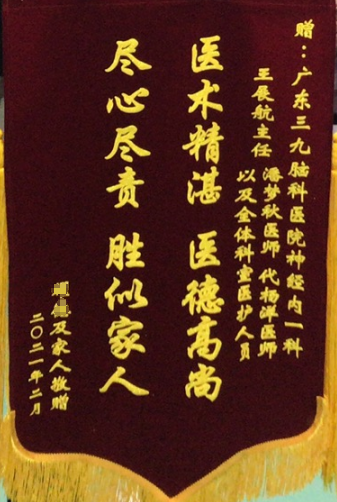 赠：广东三九脑科医院神经内一科
王展航主任 潘梦秋医师 代杨洋医师
以及全体科室医护人员
医术精湛 医德高尚
尽心尽责 胜似家人
及家人敬赠
二〇二一年二月